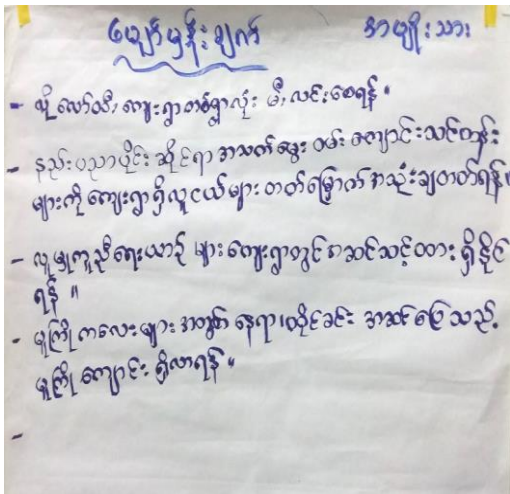 မျှော်မှန်းချက် အမျိုးသား
- ပို့လော်သီး ကျေးရွာတစ်ရွာလုံး မီးလင်းစေရန်။
- နည်းပညာပိုင်းဆိုင်ရာ အသက်မွေးဝမ်းကျောင်းသင်တန်း
များကို ကျေးရွာရှိလူငယ်များ တတ်မြောက် အသုံးချတတ်ရန်။
- လူမှုကူညီရေးယာဉ် များကျေးရွာတွင် အဆင်သင့်ထား ရှိနိုင်
ရန် ။
- မူကြိုကလေးများအတွက် နေရာ၊ထိုင်ခင်း အဆင်ပြေသည့်
မူကြိုကျောင်း ရှိလာရန်။
-